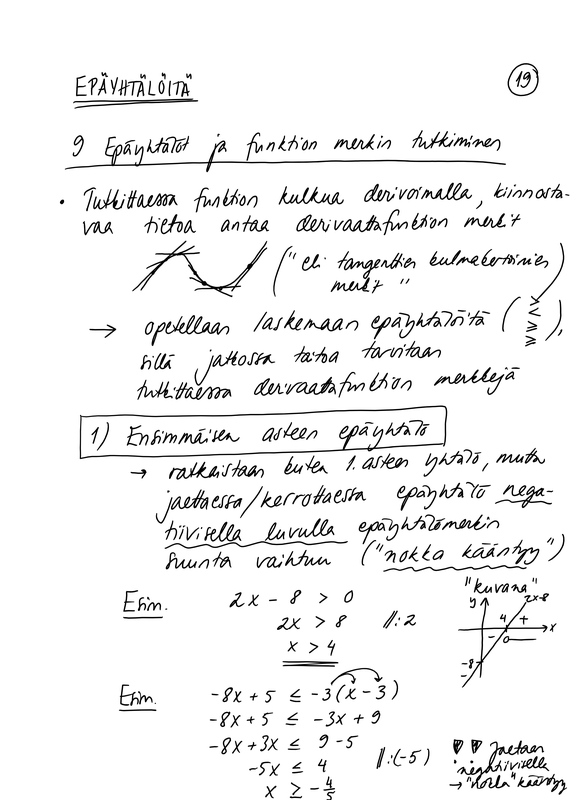 EPÄYHTÄLÖITÄ
19
9 Epäyhtälöt ja funktion merkin tutkiminen
• Tutkittaessa funktion kulkua derivoimalla, kiinnosta-
vaa tietoa antaa derivaattafunktion merkit
("eli tangenttien kulmakertoimien
merkit")
→ opetellaan laskemaan epäyhtälöitä ( > < ≤ ≥ ),
sillä jatkossa taitoa tarvitaan
tutkittaessa derivaattafunktion merkkejä
1) Ensimmäisen asteen epäyhtälö
→ ratkaistaan kuten 1. asteen yhtälö, mutta
jaettaessa/kerrottaessa epäyhtälö nega-
tiivisella luvulla epäyhtälömerkin
suunta vaihtuu ("nokka kääntyy")
Esim. 2x - 8 > 0
2x > 8 ||:2
x > 4
"kuvana"
y 2x-8
4 + x
- 0
-8
Esim. -8x + 5 ≤ -3(x - 3)
-8x + 5 ≤ -3x + 9
-8x + 3x ≤ 9 - 5
-5x ≤ 4 ||:(-5)
x ≥ -4/5
Jaetaan
negatiivisella
→ "nokka" kääntyy